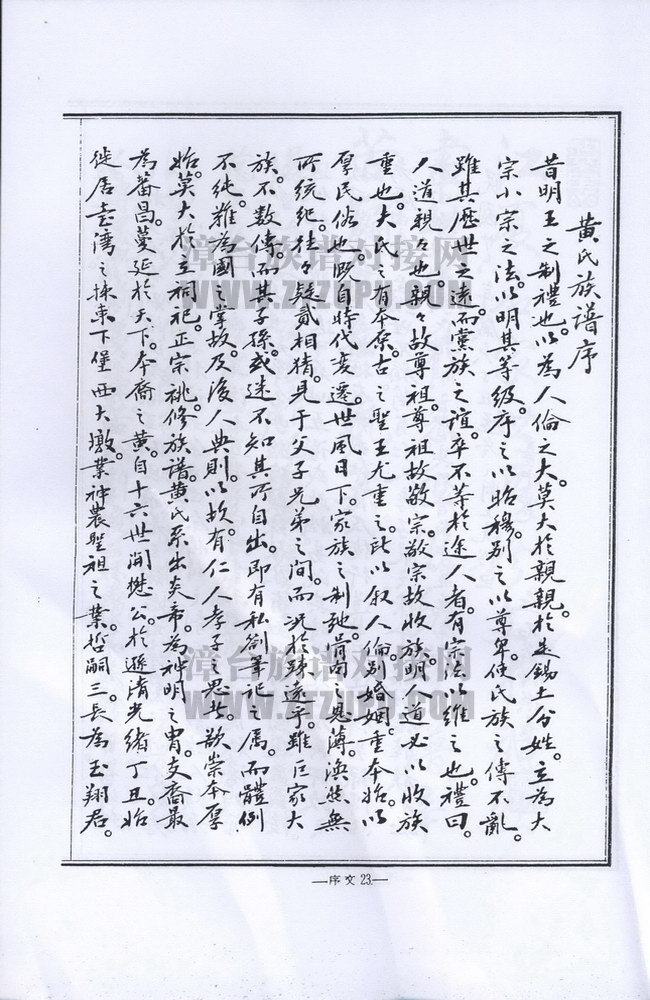 黃氏族譜序
昔明王之制禮也。以為人倫之大。莫大於親親。於是錫土分姓。立為大
宗小宗之法。以明其等級。序之以昭穆。別之以尊卑。使氏族之傳不亂。
雖其歷世之遠。而黨族之誼。卒不等於途人者。有宗法以維之也。禮曰。
人道親々也。親々故尊祖。尊祖故敬宗。敬宗故收族。明人道必以收族
重也。夫氏之有本原。古之聖王尤重之。此以叙人倫。別婚姻。重本始。以
厚民俗也。既自時代变遷。世風日下。家族之制弛。骨肉之恩薄。渙然無
所統紀。往々疑貳相猜。見于父子兄弟之間。而況於疎遠乎。雖巨家大
族。不数傳。而其子孫。或迷不知其所自出。即有私劄筆記之属。而體例
不純。難為國之掌故。及後人典則。以故有仁人孝子之思者。欲崇本厚
始。莫大於立祠祀。正宗祧。修族譜。黃氏系出炎帝。為神明之胄。支裔最
為蕃昌。蔓延於天下。本裔之黃。自十六世開懋公。於遜清光緒丁丑。始
徙居臺灣之揀東下堡西大墩。業神農聖祖之業。哲嗣三。長為玉翔君。
—序文23.—
漳台族谱对接网
WWW.ZTZUPU.COM
漳台族谱对接网
WWW.ZTZUPU.COM